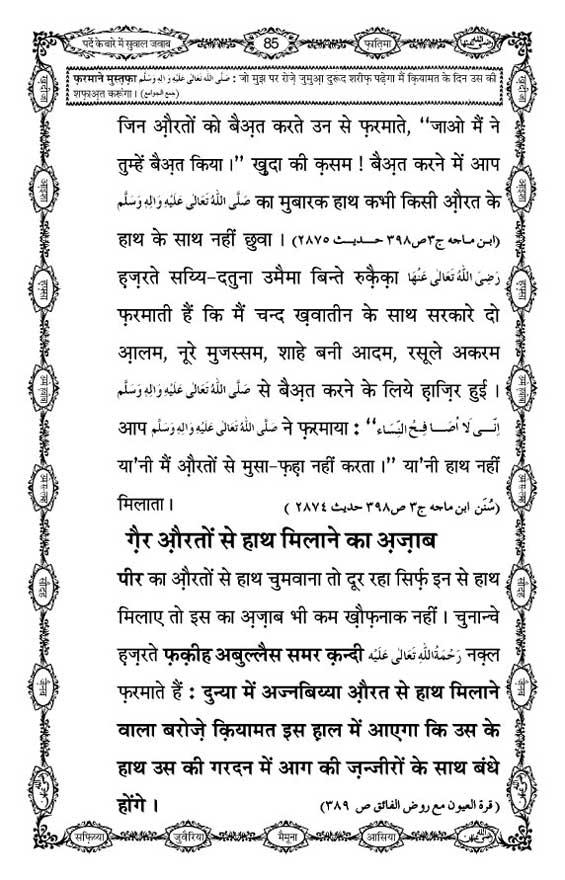 पर्दे के बारे में सुवाल जवाब 85 फ़ातिमा
फ़रमाने मुस्तफ़ा صَلَّى اللهُ تَعَالٰى عَلَيْهِ وَاٰلِهٖ وَسَلَّم : जो मुझ पर रोज़े जुमुआ दुरूद शरीफ़ पढ़ेगा मैं क़ियामत के दिन उस की
शफ़ाअ़त करूंगा । (جمع الجوامع)
जिन औ़रतों को बैअ़त करते उन से फ़रमाते, “जाओ मैं ने
तुम्हें बैअ़त किया ।” खुदा की क़सम ! बैअ़त करने में आप
صَلَّى اللهُ تَعَالٰى عَلَيْهِ وَاٰلِهٖ وَسَلَّم का मुबारक हाथ कभी किसी औ़रत के
हाथ के साथ नहीं छुवा । (ابن ماجه ج٣ ص٣٩٨ حديث ٢٨٧٥)
ह़ज़रते सय्यि-दतुना उमैमा बिन्ते रुक़ैक़ा رَضِىَ اللهُ تَعَالٰى عَنْهَا
फ़रमाती हैं कि मैं चन्द ख़वातीन के साथ सरकारे दो
आ़लम, नूरे मुजस्सम, शाहे बनी आदम, रसूले अकरम
صَلَّى اللهُ تَعَالٰى عَلَيْهِ وَاٰلِهٖ وَسَلَّم से बैअ़त करने के लिये ह़ाज़िर हुई ।
आप صَلَّى اللهُ تَعَالٰى عَلَيْهِ وَاٰلِهٖ وَسَلَّم ने फ़रमाया : “اِنِّى لَا اُصَافِحُ النِّسَاء”
या'नी मैं औ़रतों से मुसा-फ़ह़ा नहीं करता ।” या'नी हाथ नहीं
मिलाता । (سُنَن ابن ماجه ج٣ ص٣٩٨ حديث ٢٨٧٤)
ग़ैर औ़रतों से हाथ मिलाने का अ़ज़ाब
पीर का औ़रतों से हाथ चुमवाना तो दूर रहा सिर्फ़ इन से हाथ
मिलाए तो इस का अ़ज़ाब भी कम ख़ौफ़नाक नहीं । चुनान्चे
ह़ज़रते फ़क़ीह अबुल्लैस समर क़न्दी رَحْمَةُ اللهِ تَعَالٰى عَلَيْه नक़्ल
फ़रमाते हैं : दुन्या में अज्नबिय्या औ़रत से हाथ मिलाने
वाला बरोज़े क़ियामत इस ह़ाल में आएगा कि उस के
हाथ उस की गरदन में आग की ज़न्जीरों के साथ बंधे
होंगे । (قرة العيون مع روض الفائق ص ٣٨٩)
सफ़िय्या जुवैरिया मैमूना आसिया